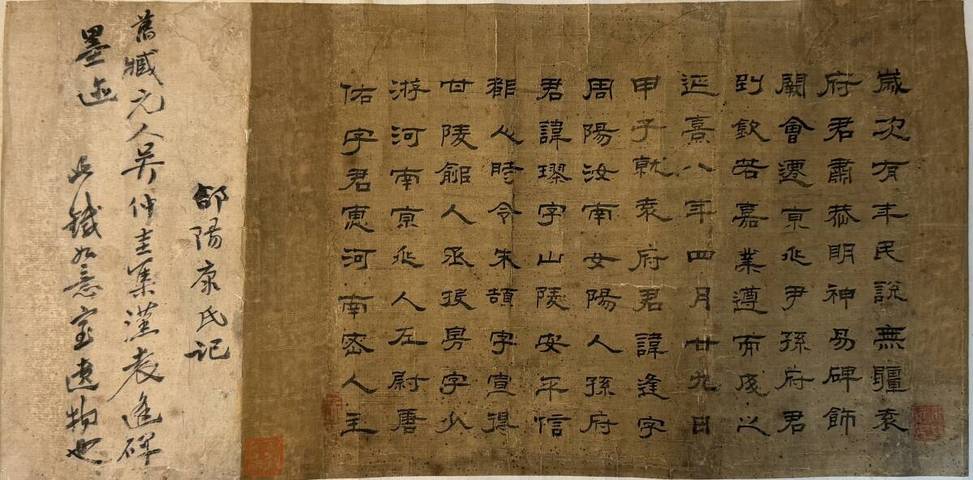 歲次有年民說無疆袁
府君肅恭明神易碑飾
闕會遷京兆尹孫府君
到欽若嘉業遵而成之
延熹八年四月廿九日
甲子就袁府君諱逢字
周陽汝南女陽人孫府
君諱璆字山陵安平信
都人時令朱頡字宣得
甘陵鄃人丞張昉字少
游河南京兆人左尉唐
佑字君惠河南密人主
郃陽康氏記
舊臧元人吳仲圭集漢袁逢碑
墨迹 此鐵如意室遺物也